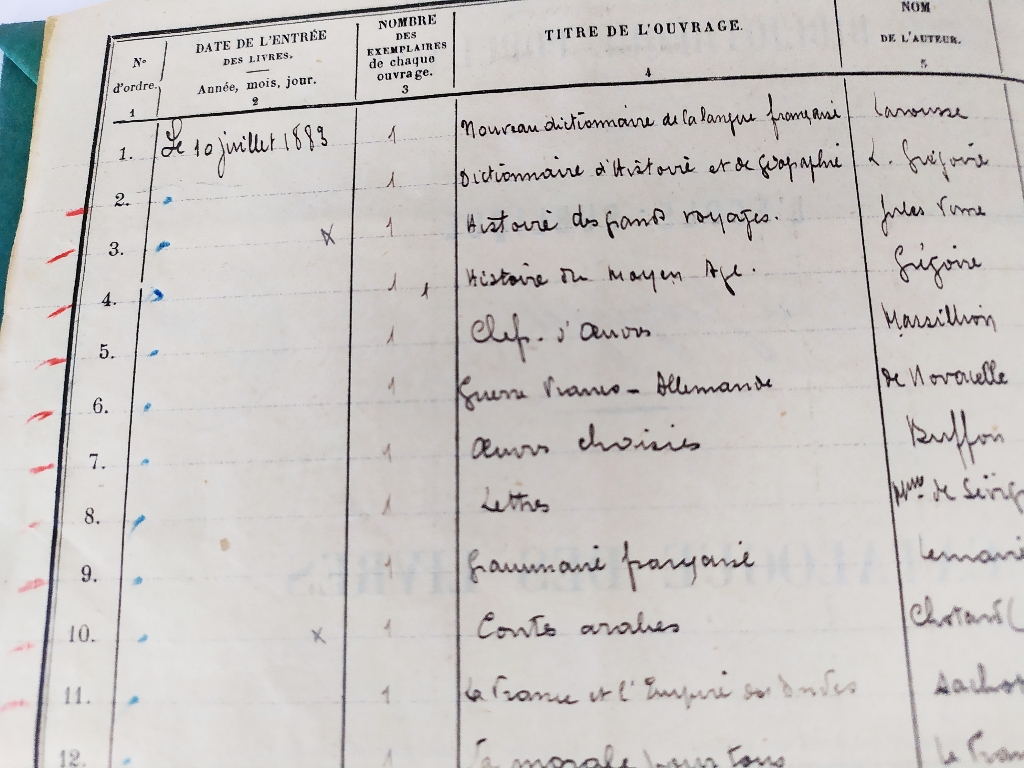 N° d'ordre.
1
DATE DE L'ENTRÉE
DES LIVRES.
Année, mois, jour.
2
NOMBRE
DES
EXEMPLAIRES
de chaque
ouvrage.
3
TITRE DE L'OUVRAGE.
4
NOM
DE L'AUTEUR.
5
1. Le 10 juillet 1883 1 Nouveau dictionnaire de la langue française Larousse
2. 1 Dictionnaire d'Histoire et de Géographie L. Grégoire
3. 1 Histoire des grands voyages. Jules Verne
4. 1 1 Histoire du Moyen Age. Grégoire
5. 1 Chefs. d'Œuvres Massillion
6. 1 Guerre Franco-Allemande de
7. 1 Œuvres choisies Buffon
8. 1 Lettres Mme de
9. 1 Grammaire française
10. 1 Contes arabes
11. 1 La France et l'Empire des Indes
12. 1 La morale pour tous